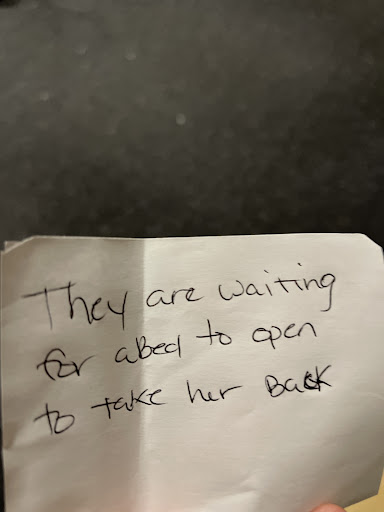 They are waiting
for a bed to open
to take her Back